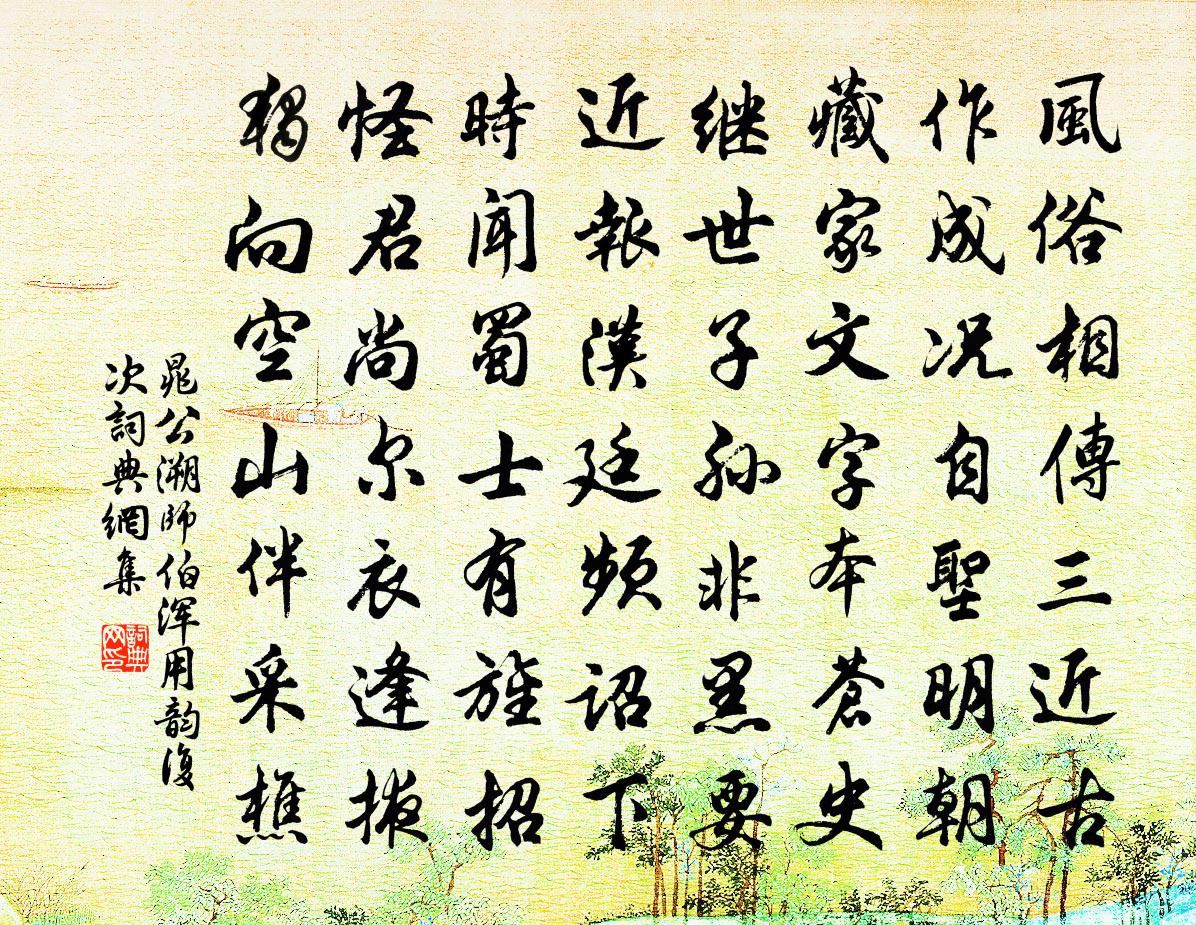 風俗相傳三近古
作成况自聖明朝
藏家文字本蒼史
継世子孙非黑要
近報漢廷頻詔下
時闻蜀士有旌招
怪君尚尔衣逢掖
獨向空山伴采樵
晁公溯師伯浑用韵復
次詞典網集
詞典网印